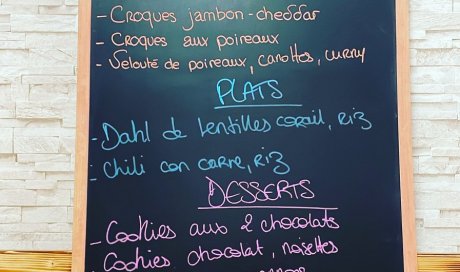 - Croques jambon-cheddar
- Croques aux poireaux
- Velouté de poireaux, carottes, curry
PLATS
- Dahl de lentilles corail, riz
- Chili con carne, riz
DESSERTS
- Cookies aux 2 chocolats
Cookies chocolat, noisettes